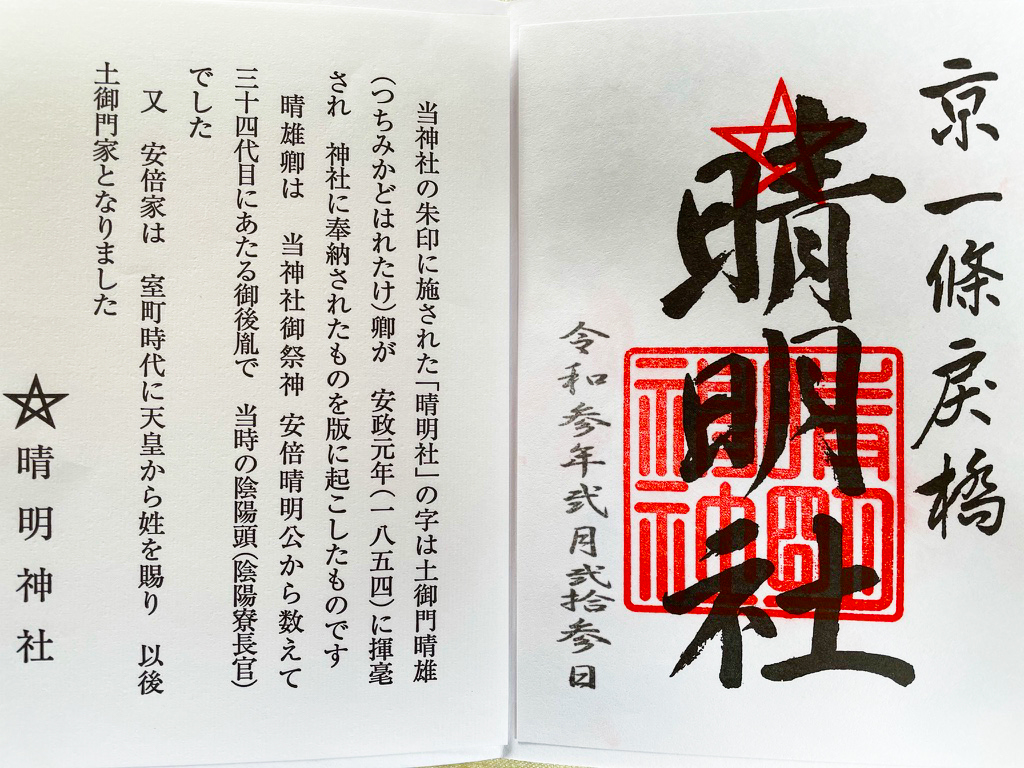 京一條戻橋
晴明社
晴明神社
令和参年弐月弐拾参日
当神社の朱印に施された「晴明社」の字は土御門晴雄
(つちみかどはれたけ)卿が 安政元年(一八五四)に揮毫
され 神社に奉納されたものを版に起こしたものです
晴雄卿は 当神社御祭神 安倍晴明公から数えて
三十四代目にあたる御後胤で 当時の陰陽頭(陰陽寮長官)
でした
又 安倍家は 室町時代に天皇から姓を賜り 以後
土御門家となりました
晴明神社